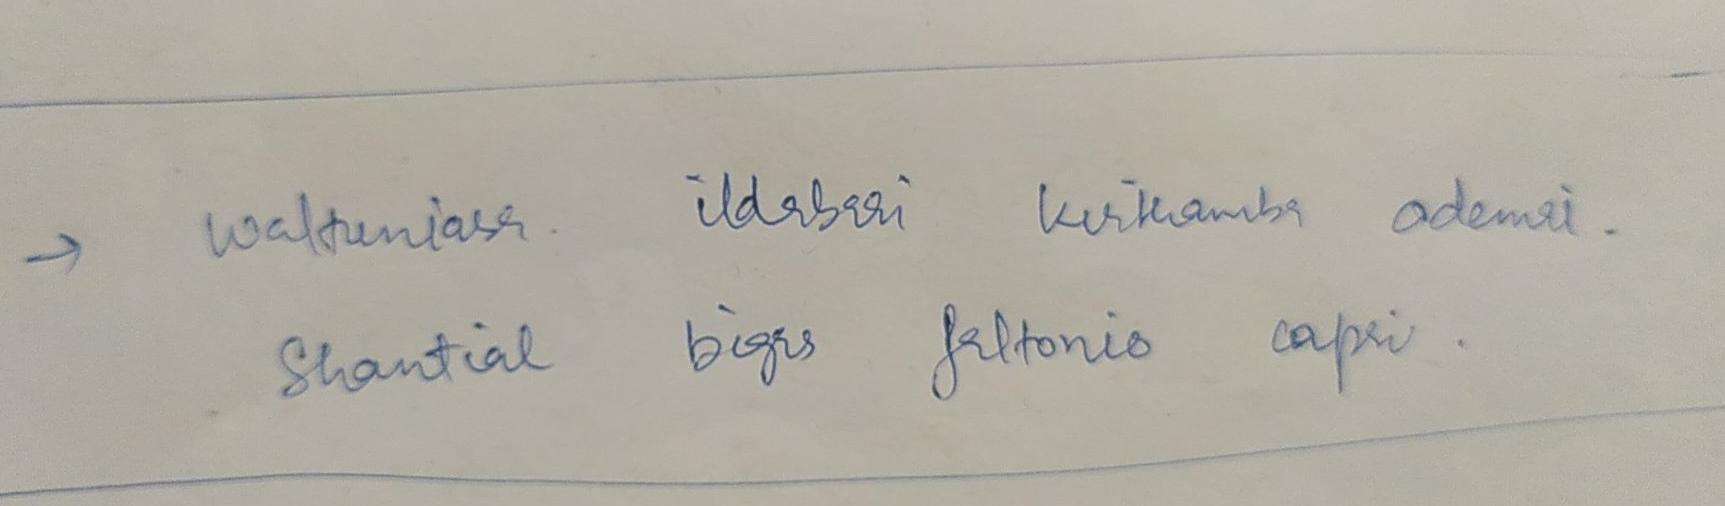 → Waltuniasa. ildabasi kuikamba ademai.
Shantial bigas faltonio capsi.